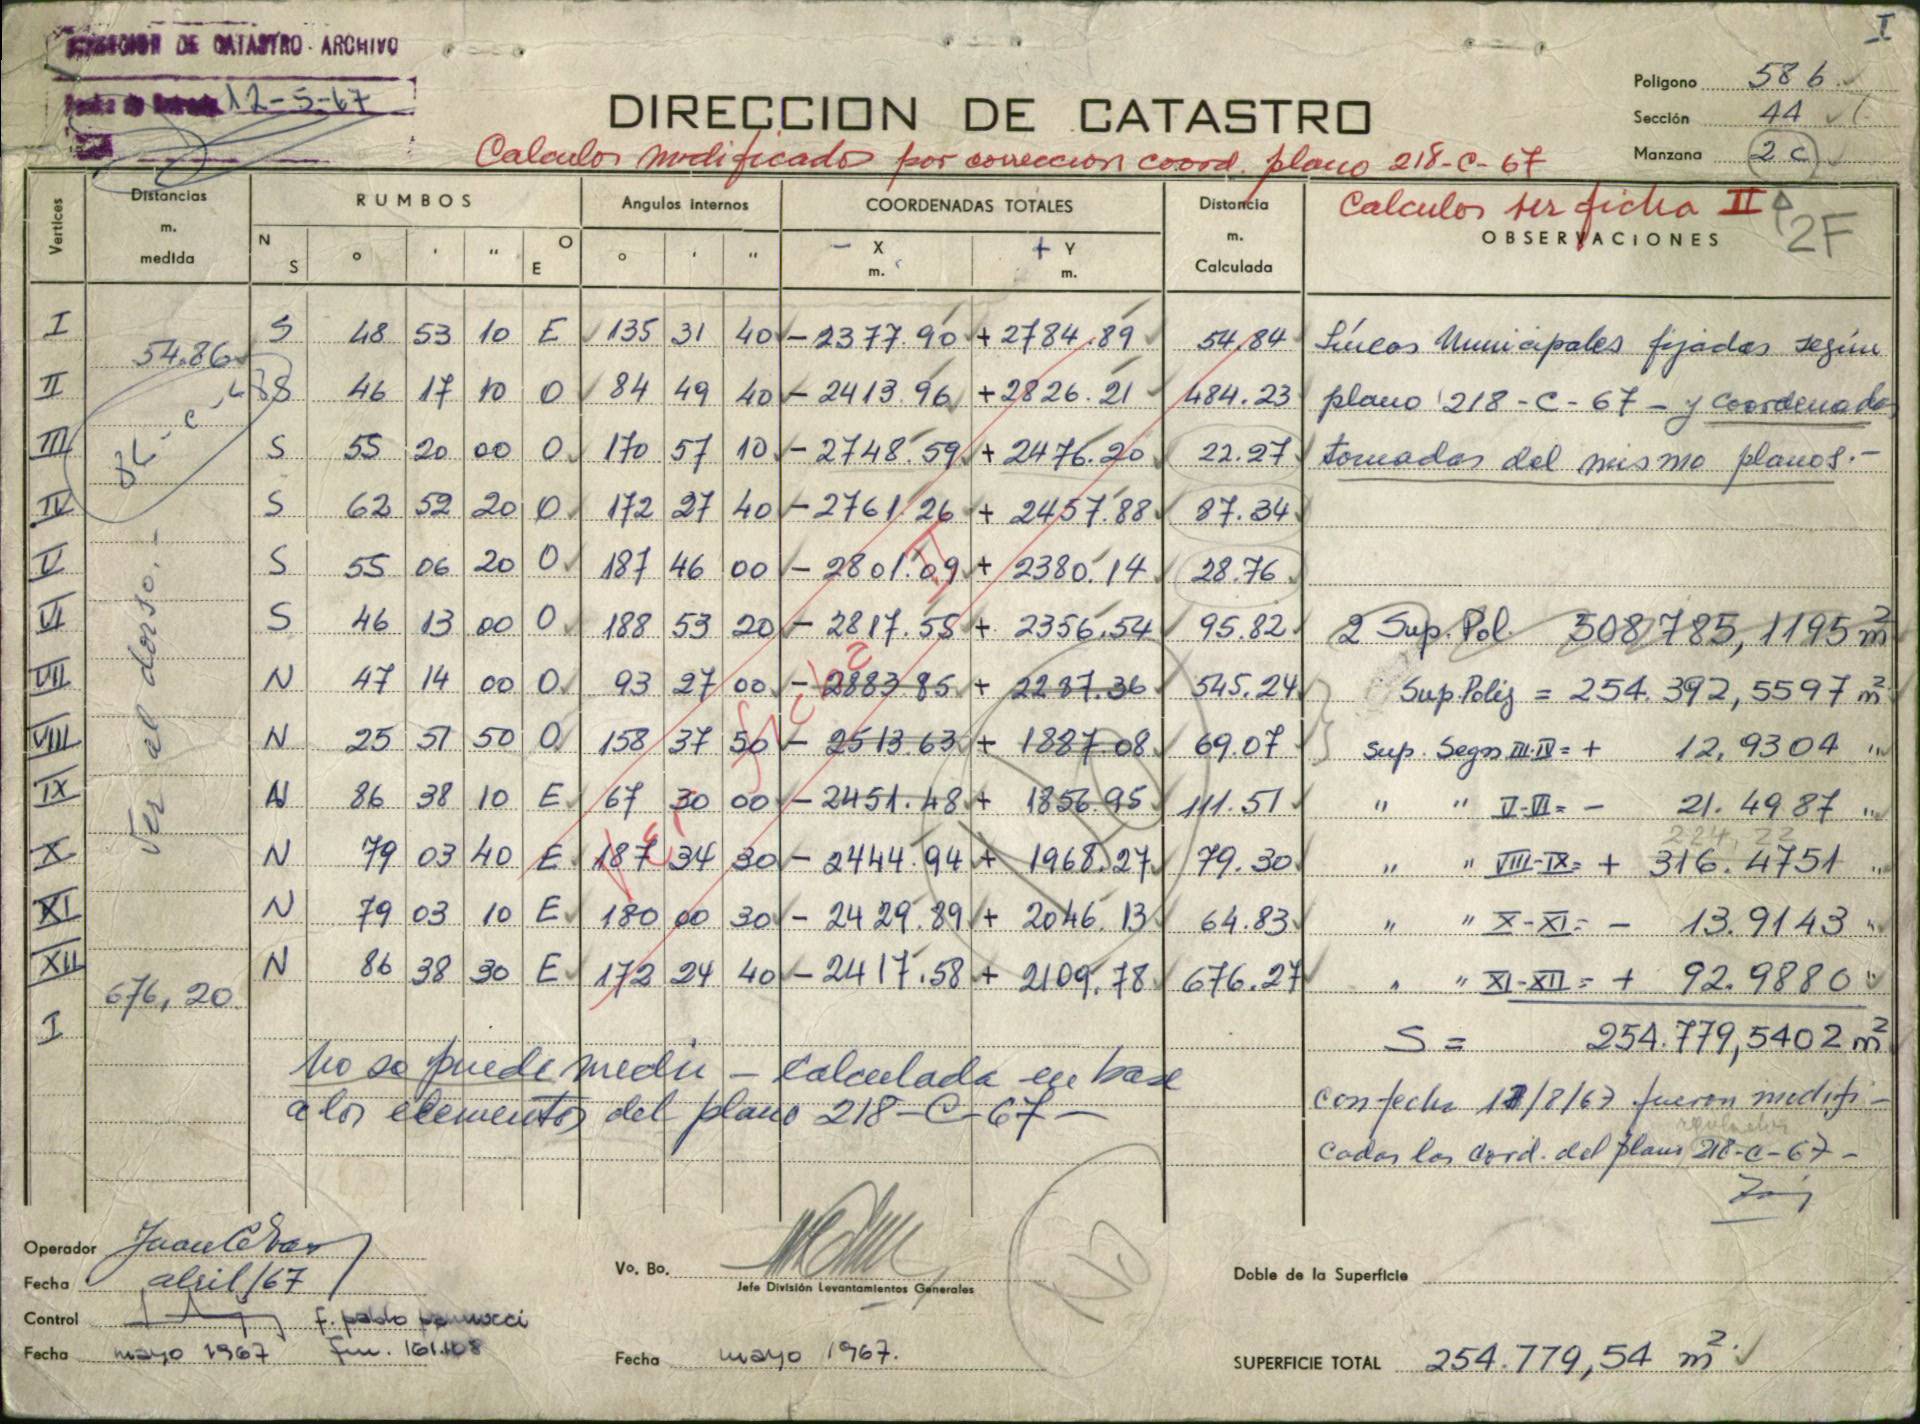 I
DIRECCION DE CATASTRO - ARCHIVO
12-5-67
DIRECCION DE CATASTRO
Poligono 58 b
Sección 44
Manzana 2 c
Calculos modificados por correccion coord. plano 218-C-67
Calculos ver ficha II
2F
Vertices
Distancias m. medida
RUMBOS
N S ° ' " O E
Angulos internos
° ' "
COORDENADAS TOTALES
- X m.
+ Y m.
Distancia m. Calculada
OBSERVACIONES
I S 48 53 10 E 135 31 40 - 2377.90 + 2784.89 54.84
54.86
II S 46 17 10 O 84 49 40 - 2413.96 + 2826.21 484.23
III S 55 20 00 O 170 57 10 - 2748.59 + 2476.20 22.27
IV S 62 52 20 O 172 27 40 - 2761.26 + 2457.88 87.34
V S 55 06 20 O 187 46 00 - 2801.09 + 2380.14 28.76
VI S 46 13 00 O 188 53 20 - 2817.55 + 2356.54 95.82
VII N 47 14 00 O 93 27 00 - 2883.85 + 2287.36 545.24
VIII N 25 51 50 O 158 37 50 - 2513.63 + 1887.08 69.07
IX N 86 38 10 E 67 30 00 - 2451.48 + 1856.95 111.51
X N 79 03 40 E 187 34 30 - 2444.94 + 1968.27 79.30
XI N 79 03 10 E 180 00 30 - 2429.89 + 2046.13 64.83
XII N 86 38 30 E 172 24 40 - 2417.58 + 2109.78 676.27
676,20
I
Ver al dorso.-
Ver ficha II
No se puede medir - Calculada en base
a los elementos del plano 218-C-67-
Líneas Municipales fijadas según
plano 218-C-67- y coordenadas
tomadas del mismo planos.-
2 Sup. Pol. 508785,1195 m²
Sup. Polig = 254.392,5597 m²
Sup. Segm III-IV = + 12,9304 "
" " V-VI = - 21.4987 "
224,22
" " VIII-IX = + 316.4751 "
" " X-XI = - 13.9143 "
" " XI-XII = + 92.9880
S = 254.779,5402 m²
Con fecha /8/67 fueron modifi-
cadas las cord. del plano 218-C-67-
Operador
Fecha abril/67
Control f. pablo
Fecha mayo 1967
Vo. Bo.
Jefe División Levantamientos Generales
Fecha mayo 1967.
No
Doble de la Superficie
SUPERFICIE TOTAL 254.779,54 m²